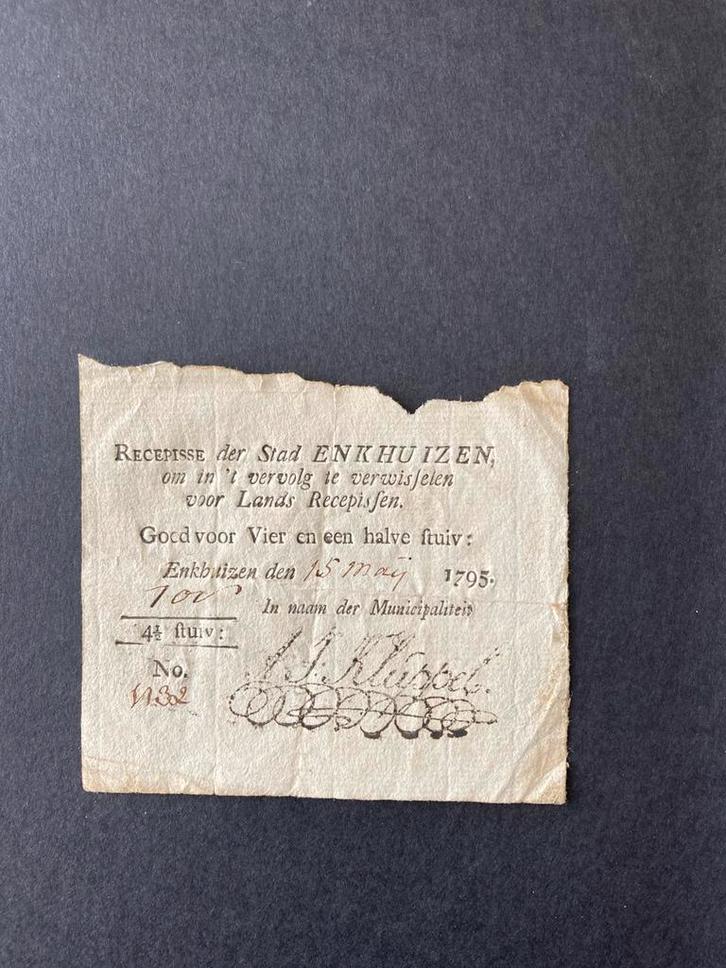 RECEPISSE der Stad ENKHUIZEN,
om in 't vervolg te verwisſelen
voor Lands Recepisſen.
Goed voor Vier en een halve ſtuiv:
Enkhuizen den 15 maij 1795.
In naam der Municipaliteit
4½ ſtuiv:
No.
Kluppel.